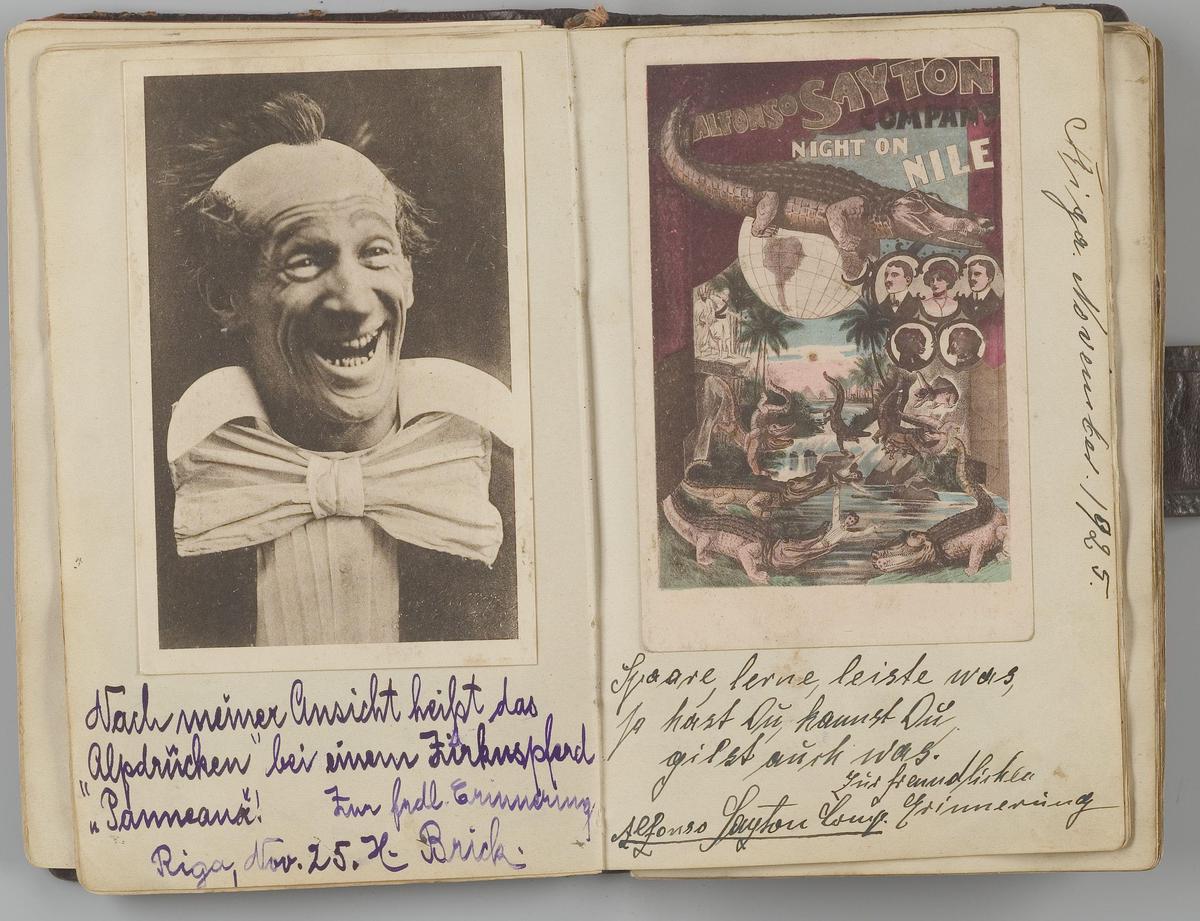 Nach meiner Ansicht heißt das
„Alpdrücken" bei einem Zirkuspferd
„Panneaux"!
Zur frdl. Erinnerung
Riga, Nov. 25. H. Brick.
ALFONSO SAYTON
COMPANY
NIGHT ON
NILE
Riga. November. 1925.
Spaare, lerne, leiste was,
so hast Du, kannst Du,
gilst auch was.
Zur freundlichen
Erinnerung
Alfonso Sayton Comp.